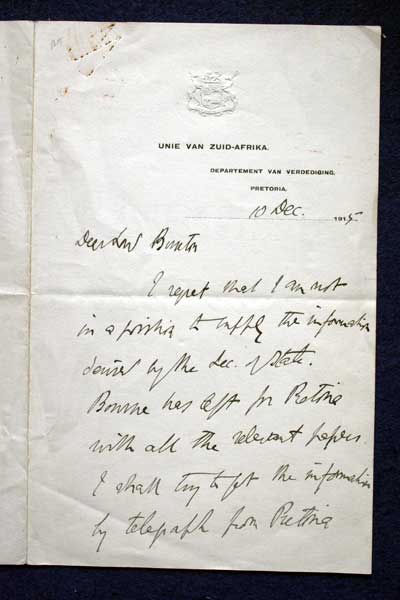 UNIE VAN ZUID-AFRIKA.
DEPARTEMENT VAN VERDEDIGING,
PRETORIA.
10 Dec. 1915.
Dear Lord Buxton
I regret that I am not
in a position to supply the information
desired by the Sec. of State.
Bourne has left for Pretoria
with all the relevant papers.
I shall try to get the information
by telegraph from Pretoria